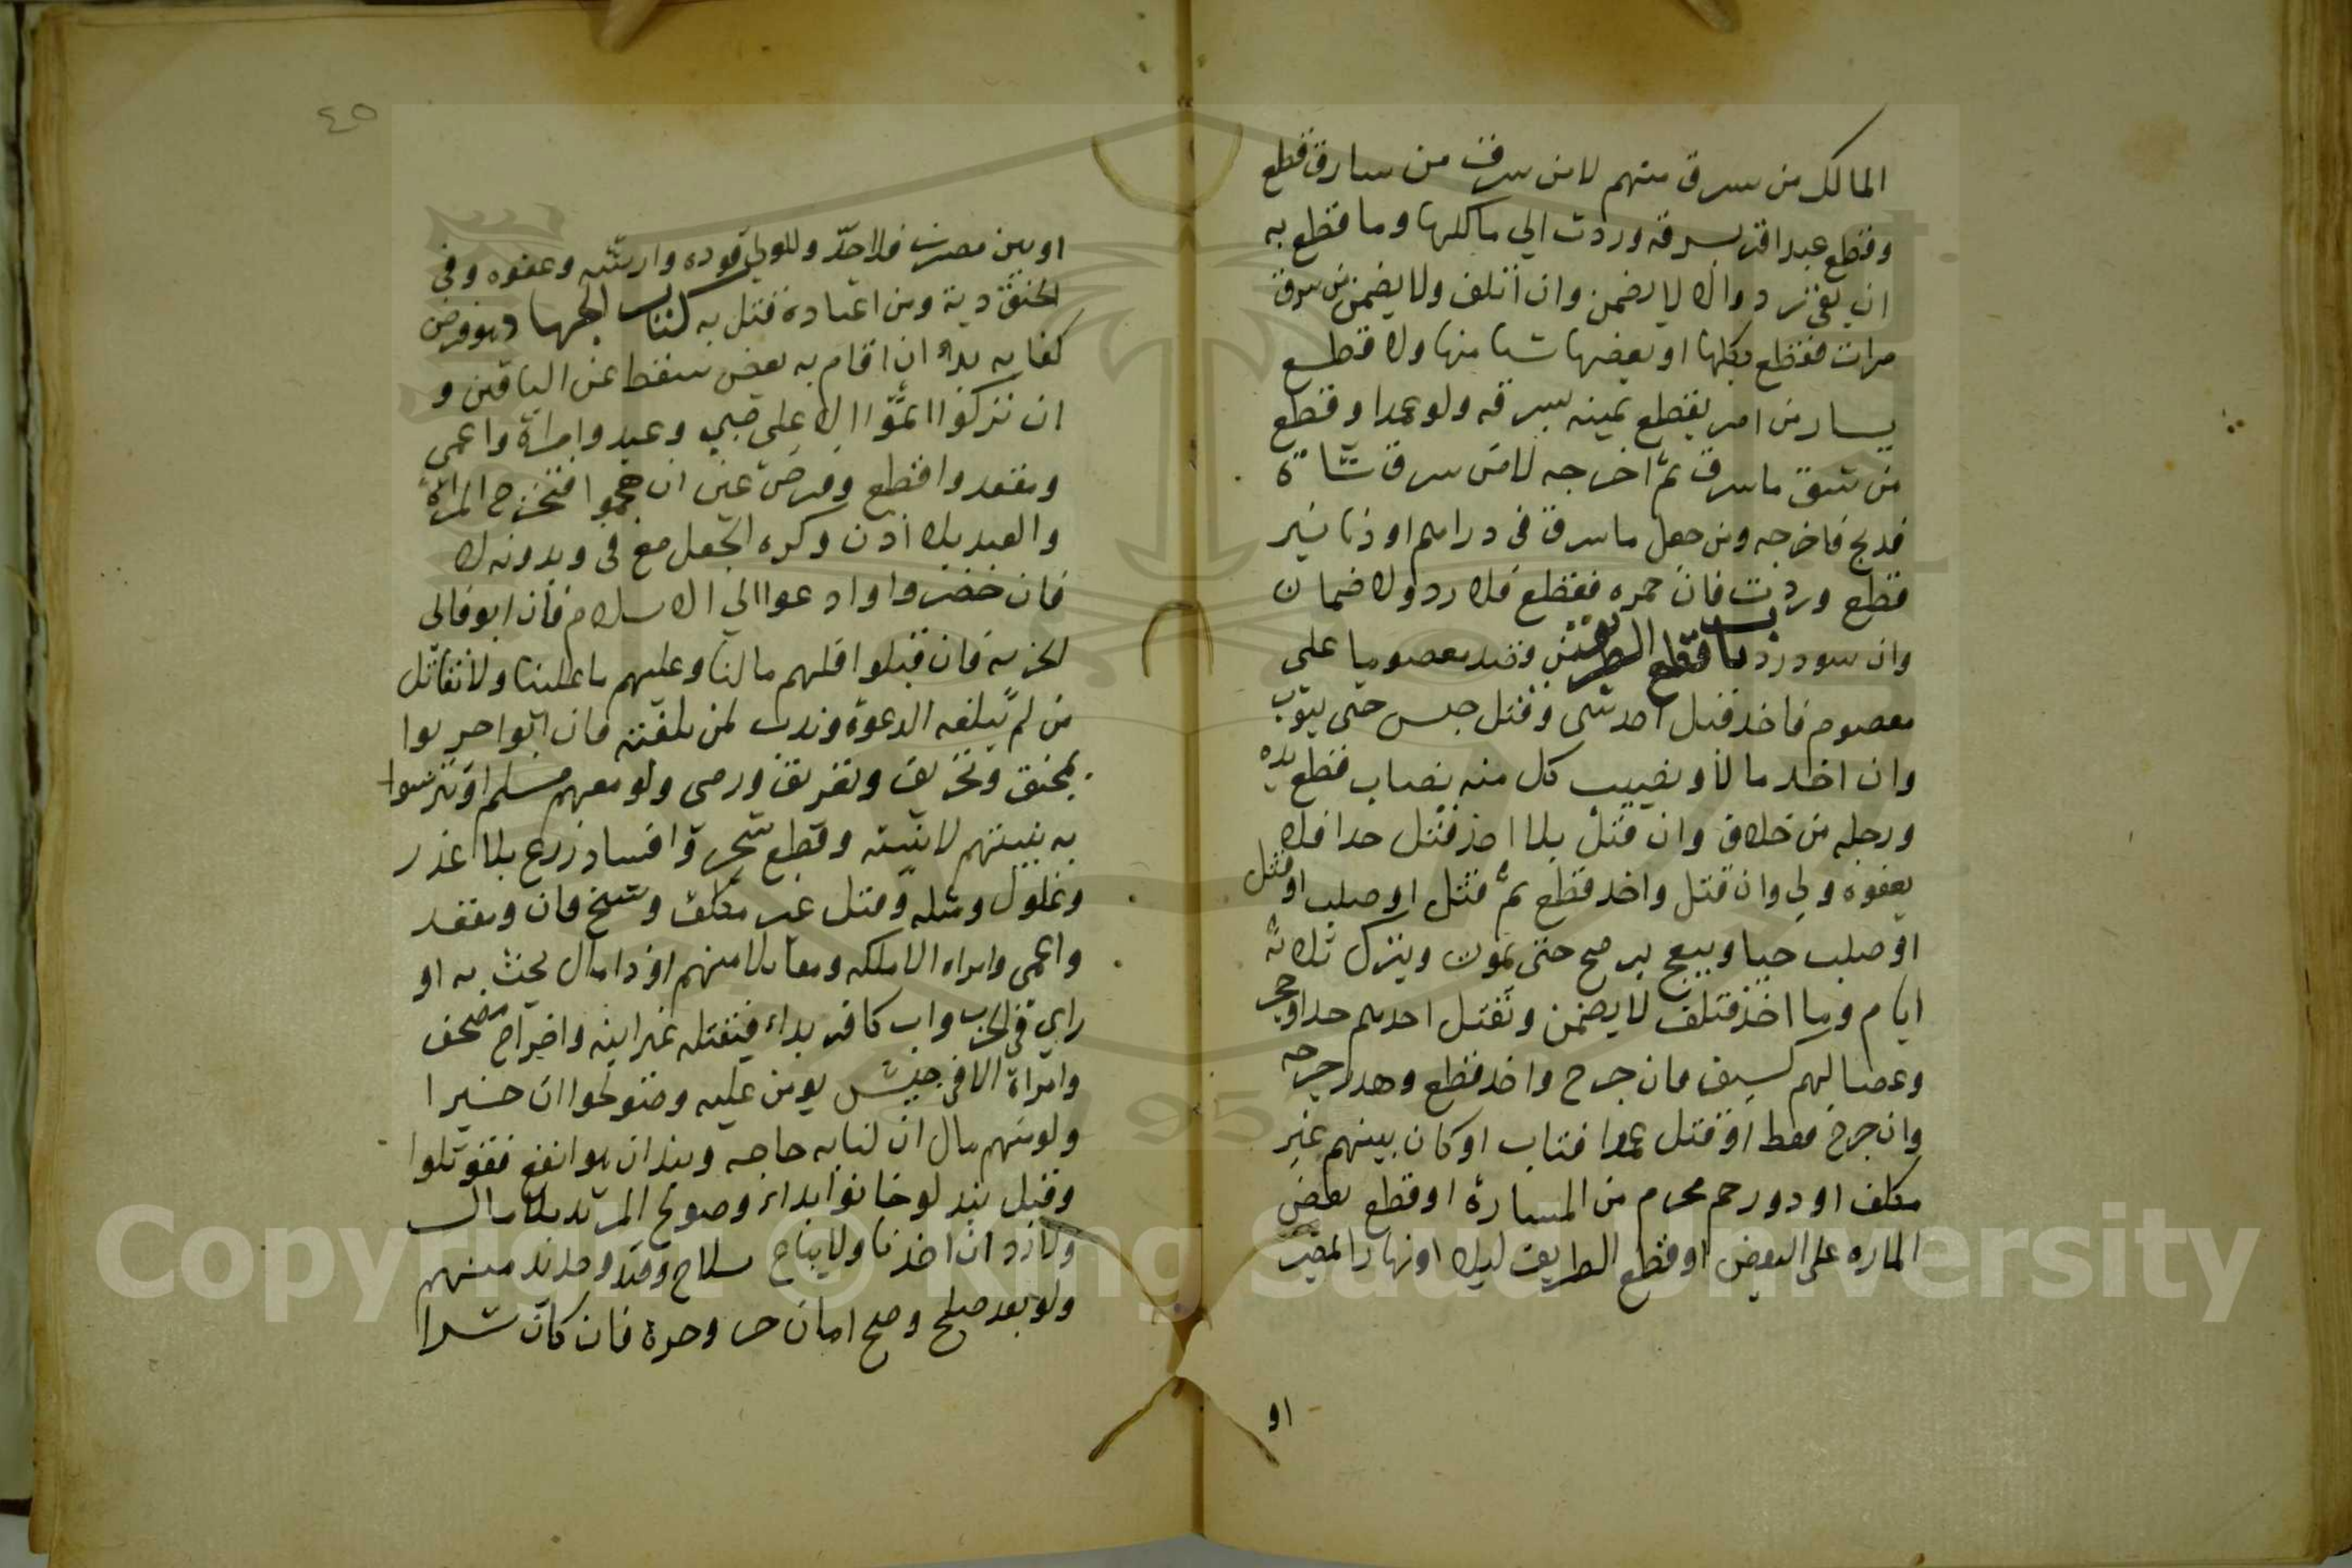 المالك من سرق منهم لا من سرق من سارق قطع
وقطع عبد اقر بسرقة وردت الي مالكها وما قطع به
ان بقي رد والا لا يضمن وان اتلف ولا يضمن من سرق
مرات فقطع بكلها او بعضها شيا منها ولا قطع
يسار من امر بقطع يمينه بسرقه ولو عمدا وقطع
من شق ما سرق ثم اخرجه لا من سرق شاة
فذبح فاخرجه ومن جعل ما سرق في دراهم او دنانير
قطع وردت فان حمره فقطع فلا رد ولا ضمان
وان سود رد باب قطع الطريق من قصد معصوما علي
معصوم فاخذ قبل اخذ شي وقتل حبس حتى يتوب
وان اخذ مالا ونصيب كل منه نصاب قطع يده
ورجله من خلاف وان قتل بلا اخذ قتل حدا فلا
يعفوه ولي وان قتل واخذ قطع ثم قتل او صلب او قتل
او صلب حيا ويبعج برمح حتى يموت ويترك ثلاثة
ايام وما اخذ فتلف لا يضمن وبقتل احدهم حدوا وحجر
وعصا لهم كسيف فان جرح واخذ قطع وهدر جرحه
وان جرح فقط او قتل عمدا فتاب او كان بينهم غير
مكلف او ذو رحم محرم من المارة او قطع بعض
الماره على البعض او قطع الطريق ليلا او نهارا بمصر
او
٤٥
او بين مصرين فلا حد وللولي قوده وارشه وعفوه وفي
الخنق دية ومن اعتاده قتل به كتاب الجهاد هو فرض
كفايه بدأ ان اقام به بعض سقط عن الباقين و
ان تركوا اثموا الا على صبي وعبد وامراة واعمى
ومقعد واقطع وفرض عين ان هجموا فتخرج المراة
والعبد بلا اذن وكره الجعل مع في وبدونه لا
فان حضروا ادعوا الي الاسلام فان ابو فالى
الجزيه فان قبلوا فلهم ما لنا وعليهم ما علينا ولا نقاتل
من لم تبلغه الدعوة وندب لمن بلغته فان ابوا حوربوا
بمجنق وتحريق وتغريق ورمى ولو معهم مسلم او تترسوا
به بنيتهم لا بنيته وقطع شجرة وافساد زرع بلا غدر
وغلول ومثله وقتل غير مكلف وشيخ فان ومقعد
واعمى وامراه الا ملكه ومقاتلا منهم او ذا مال يحث به او
راي في الحرب واب كافر بداء فيقتله غير ابنه واخراج مصحف
وامراة الا في جيش يومن عليه وصولحوا ان خيرا
ولو منهم بمال ان لنا به حاجه ونبذ ان هو انفع فقوتلوا
وقبل نبذ لو خانوا بداء وصولح المرتد بلا مال
ولا رد ان اخذنا ولا يباع سلاح وخيل وحديد منهم
ولو بعد صلح وصح امان حر وحرة فان كان شرا